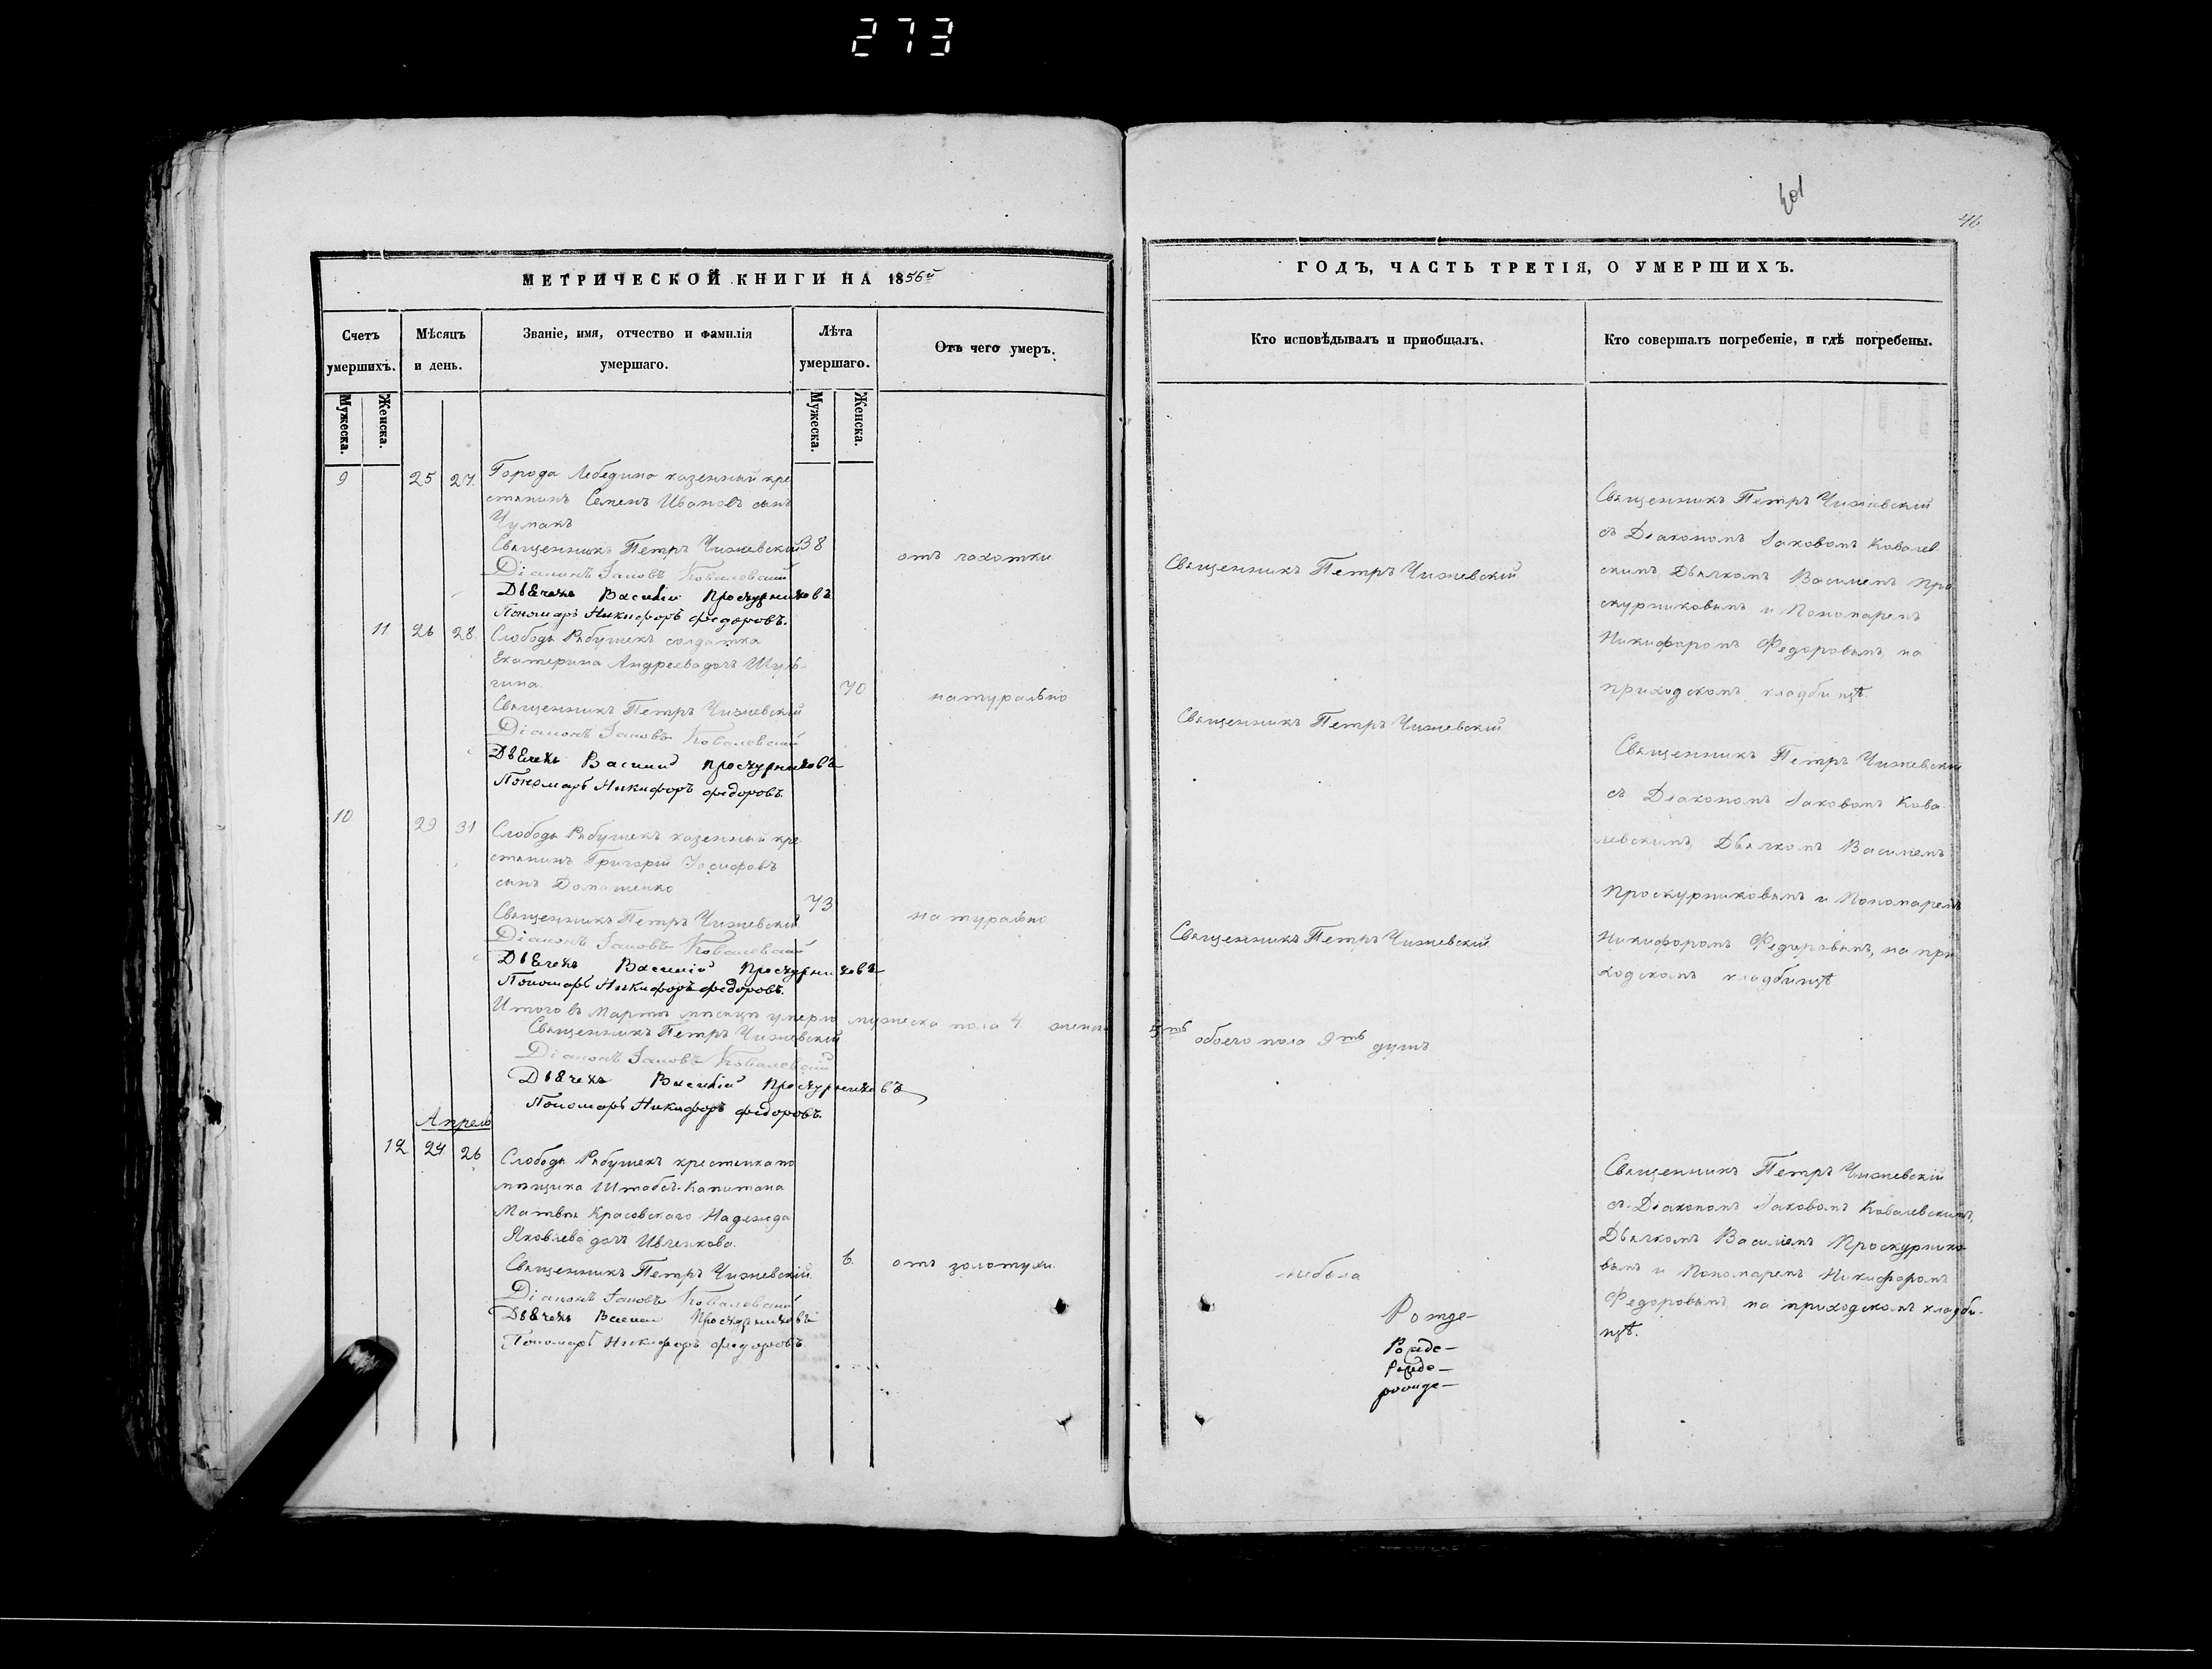 273
401
46
МЕТРИЧЕСКОЙ КНИГИ НА 1856й
ГОДЪ, ЧАСТЬ ТРЕТІЯ, О УМЕРШИХЪ.
Счетъ умершихъ.
Мѣсяцъ и день.
Званіе, имя, отчество и фамилія умершаго.
Лѣта умершаго.
Отъ чего умеръ.
Кто исповѣдывалъ и приобщалъ.
Кто совершалъ погребеніе, и гдѣ погребены.
Мужеска.
Женска.
Мужеска.
Женска.
9
25
27
Города Лебедина казенный кре
стьянинъ Семенъ Ивановъ сынъ
Чумакъ
Священникъ Петръ Чижевскій
Діаконъ Іаковъ Ковалевскій
Дьячекъ Василій Проскурниковъ
Пономарь Никифоръ Федоровъ.
38
отъ чахотки
Священникъ Петръ Чижевскій
Священникъ Петръ Чижевскій
съ Діакономъ Іаковомъ Ковалев
скимъ, Дьячкомъ Василіемъ Про
скурниковымъ и Пономаремъ
Никифоромъ Федоровымъ, на
приходскомъ кладбищѣ
11
26
28
Слободы Рябушекъ солдатка
Екатерина Андреева дочь Шуль-
гина
Священникъ Петръ Чижевскій
Діаконъ Іаковъ Ковалевскій
Дьячекъ Василій Проскурниковъ
Пономарь Никифоръ Федоровъ
70
натурально
Священникъ Петръ Чижевскій
Священникъ Петръ Чижевскій
съ Діакономъ Іаковомъ Кова-
левскимъ, Дьячкомъ Василіемъ
Проскурниковымъ и Пономаремъ
Никифоромъ Федоровымъ, на при
ходскомъ кладбищѣ
10
29
31
Слободы Рябушекъ казенный кре-
стьянинъ Григорій Іосифовъ
сынъ Домашенко
Священникъ Петръ Чижевскій
Діаконъ Іаковъ Ковалевскій
Дьячекъ Василій Проскурниковъ
Пономарь Никифоръ Федоровъ.
73
натурально
Священникъ Петръ Чижевскій
Итого въ Мартѣ мѣсяцѣ умерло мужеска пола 4 женска 5ть обоего пола 9ть душъ
Священникъ Петръ Чижевскій
Діаконъ Іаковъ Ковалевскій
Дьячекъ Василій Проскурниковъ
Пономарь Никифоръ Федоровъ.
Апрель
12
24
26
Слободы Рябушекъ крестьянка по
мѣщика Штабсъ-Капитана
Матвѣя Красовскаго Надежда
Яковлева дочь Ивченкова.
Священникъ Петръ Чижевскій.
Діаконъ Іаковъ Ковалевскій
Дьячекъ Василій Проскурниковъ
Пономарь Никифоръ Федоровъ.
6.
отъ золотухи.
небыла
Священникъ Петръ Чижевскій
съ Діакономъ Іаковомъ Ковалевскимъ,
Дьячкомъ Василіемъ Проскурнико
вымъ и Пономаремъ Никифоромъ
Федоровымъ, на приходскомъ кладби-
щѣ.